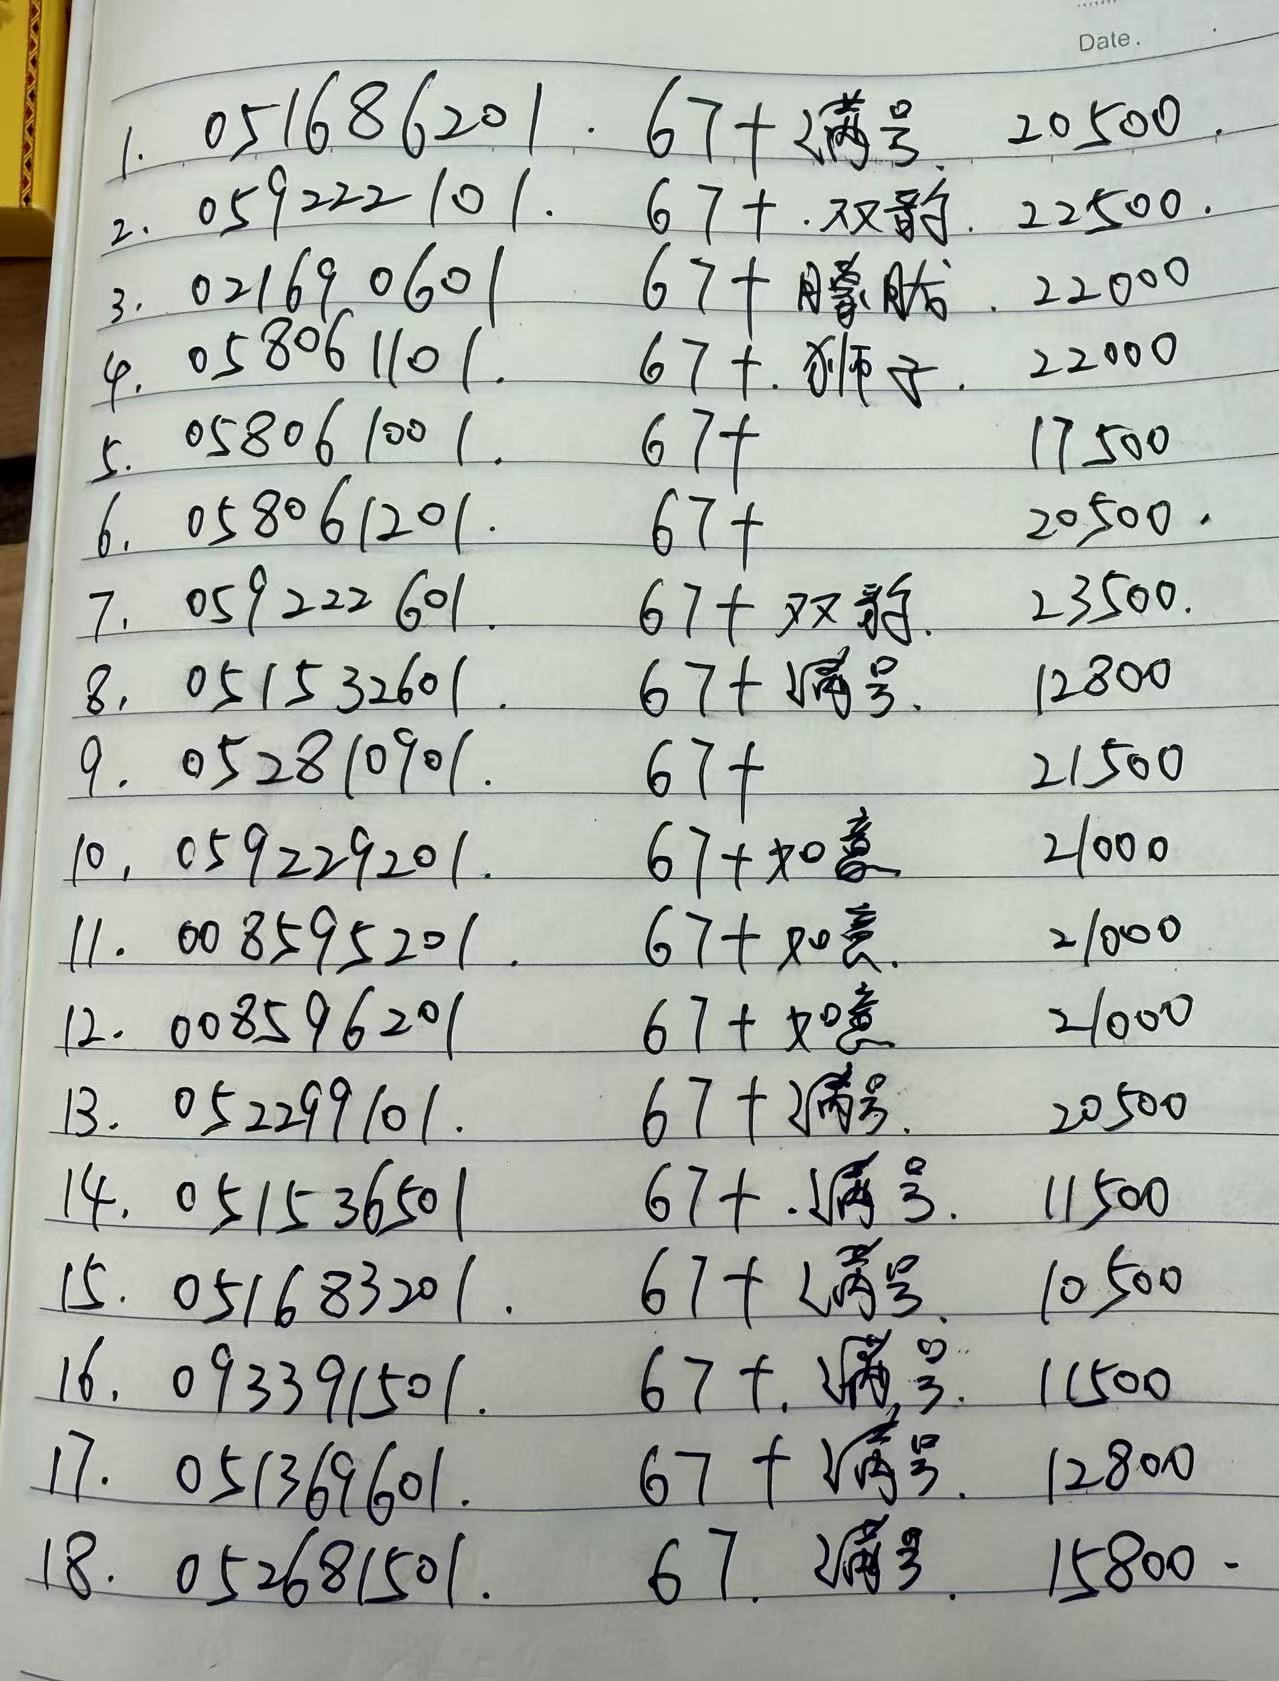 Date.
1. 051686201. 67+ 满号. 20500.
2. 059222101. 67+. 双韵. 22500.
3. 021690601 67+ 朦胧. 22000
4. 058061101. 67+. 狮子. 22000
5. 058061001. 67+ 17500
6. 058061201. 67+ 20500.
7. 059222601. 67+ 双韵. 23500.
8. 051532601. 67+ 满号. 12800
9. 052810901. 67+ 21500
10. 059229201. 67+ 如意 21000
11. 008595201. 67+ 如意. 21000
12. 008596201 67+ 如意 21000
13. 052299101. 67+ 满号. 20500
14. 051536501 67+. 满号. 11500
15. 051683201. 67+ 满号. 10500
16. 093391501. 67+. 满号. 11500
17. 051369601. 67+ 满号. 12800
18. 052681501. 67. 满号. 15800-